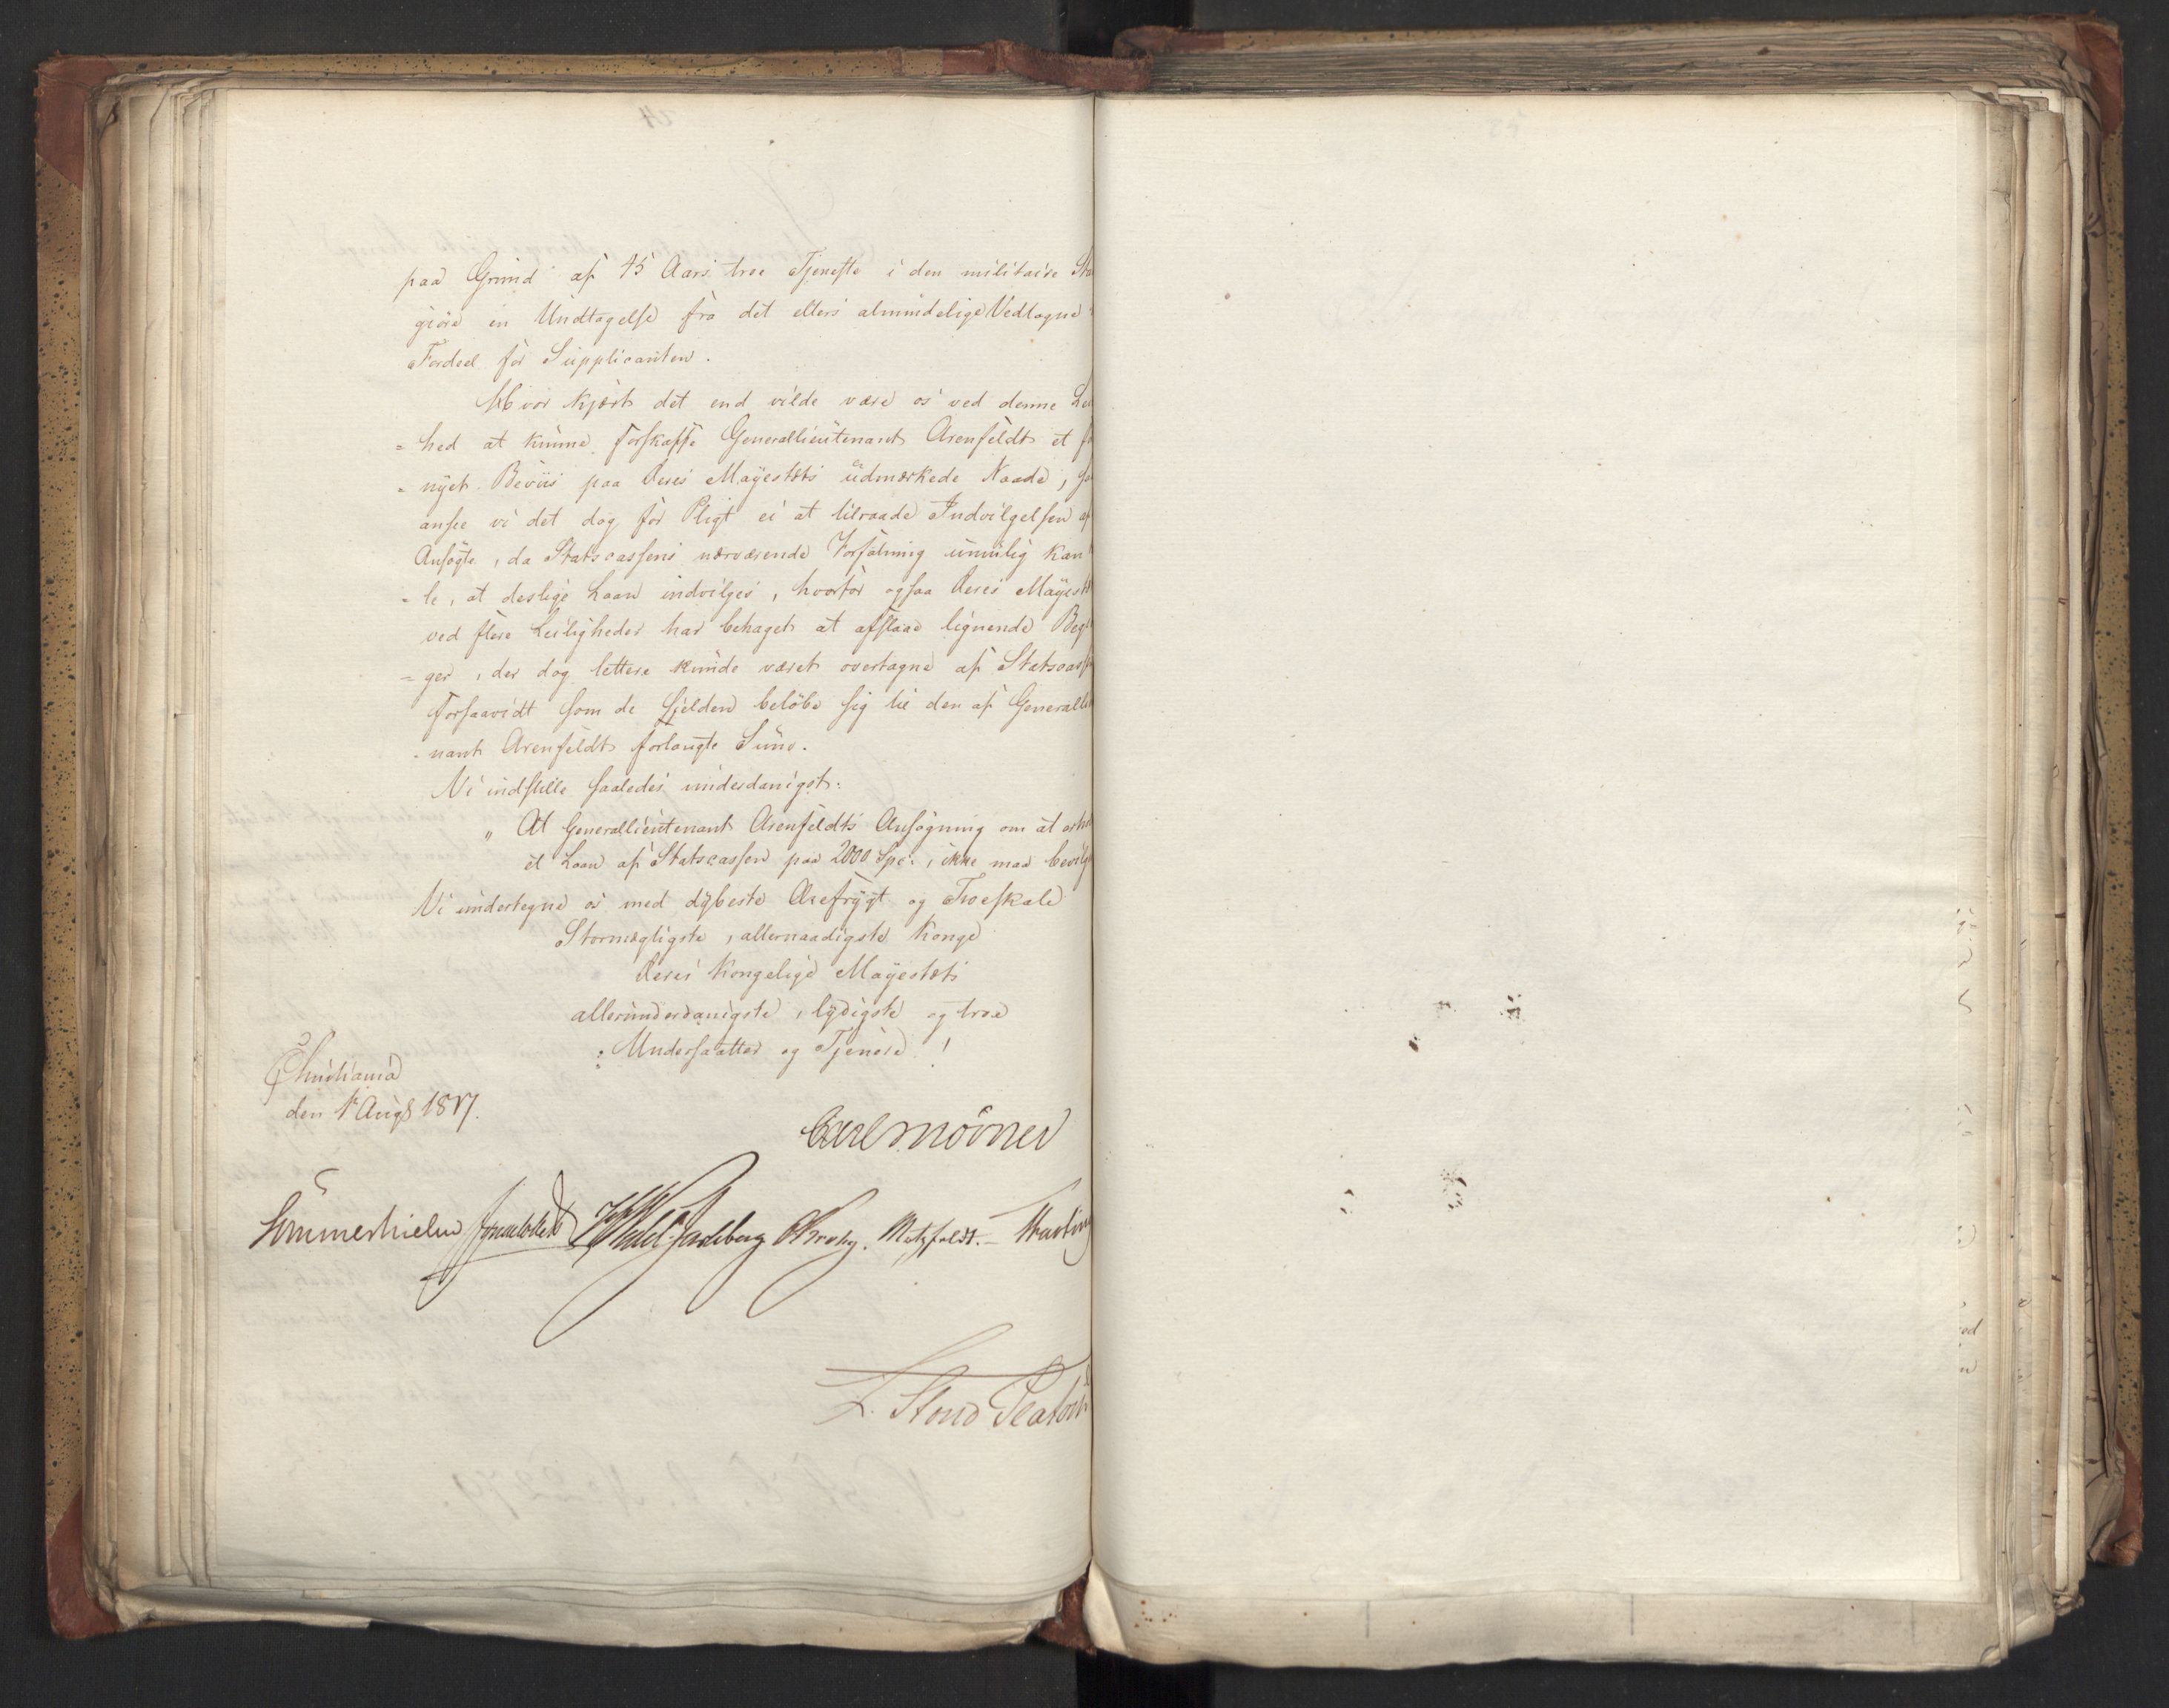 paa Grund af 45 Aars troe Tjeneste i den militaire Sta
giøre en Undtagelse fra det ellers almindelige Vedtagne
Fordeel for Supplicanten.
Hvor kjært det end vilde være os ved denne Lei
=hed at kunne forskaffe Generallieutenant Arenfeldt et fo
=nyet Beviis paa Deres Mayestæts udmærkede Naade, saa
ansee vi det dog for Pligt ei at tilraade Indvilgelsen af
Ansøgte, da Statscassens nærværende Forfatning umulig kan
=le, at deslige Laan indvilges, hvorfor ogsaa Deres Mayestæt
ved flere Leiligheder har behaget at afslaae lignende Beg
=ger, der dog lettere kunde været overtagne af Statscass
forsaavidt som de sjelden beløbe sig til den af Generallie
=nant Arenfeldt forlangte Sum.
Vi indstille saaledes underdanigst:
„ At Generallieutenant Arenfeldts Ansøgning om at erho
et Laan af Statscassen paa 2000 Spc:, ikke maa bevilg
Vi undertegne os med dybeste Ærefrygt og Troeskab
Stormægtigste, allernaadigste Konge
Deres Kongelige Mayestæts
allerunderdanigste, lydigste og troe
Undersaatter og Tjenere!
Christiania
den 1 Augs 1817.
Carl Mörner
Sommerhielm Wedel-Jarlsberg Krohg. Motzfeldt.
L. Stoud Platou